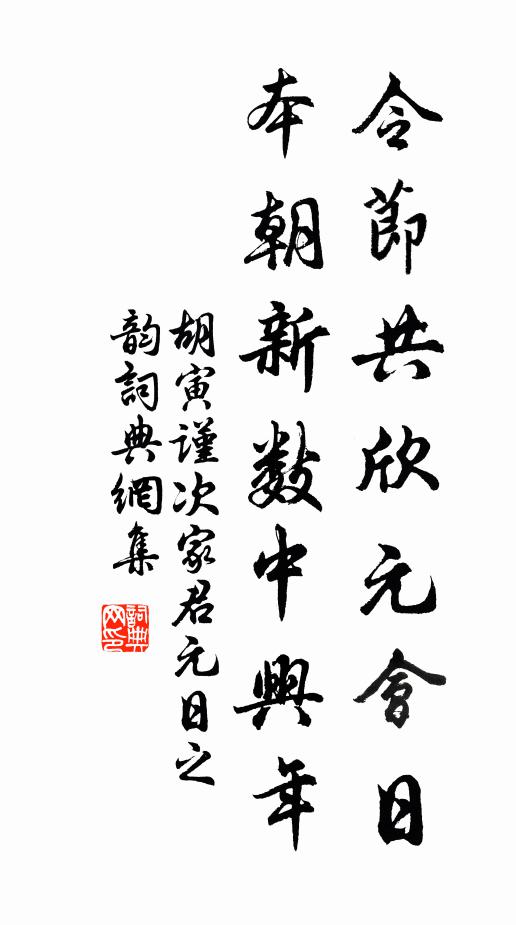 令節共欣元會日
本朝新數中興年
胡寅謹次家君元日之
韵詞典網集
詞典網印